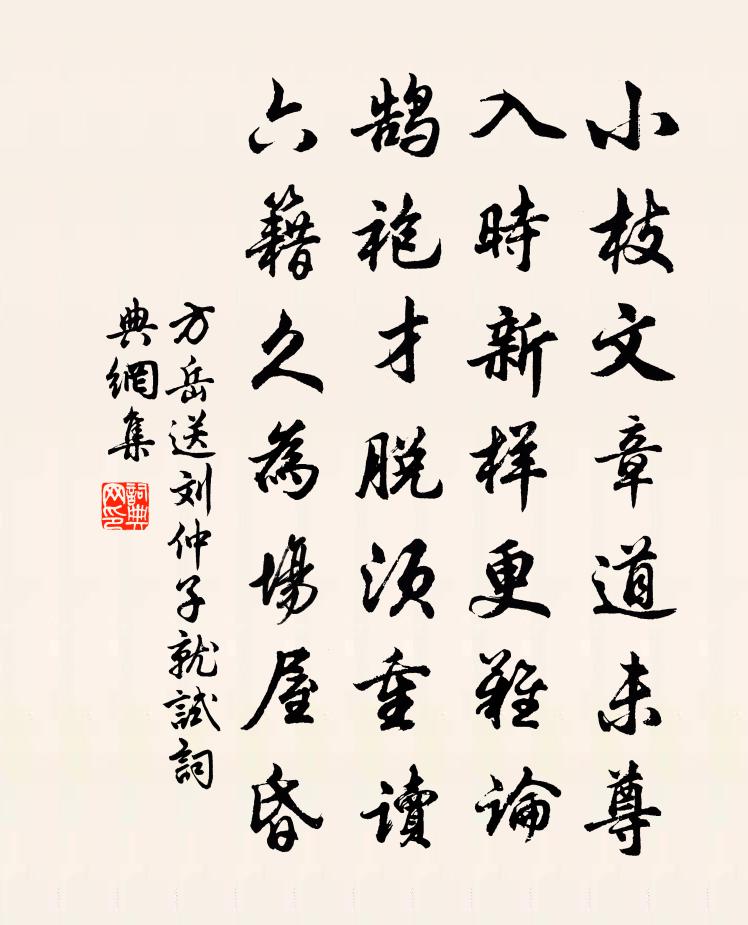 小枝文章道未尊
入時新樣更難論
鹄袍才脱須重讀
六籍久為場屋昏
方岳送刘仲子就試詞
典網集
詞典网印